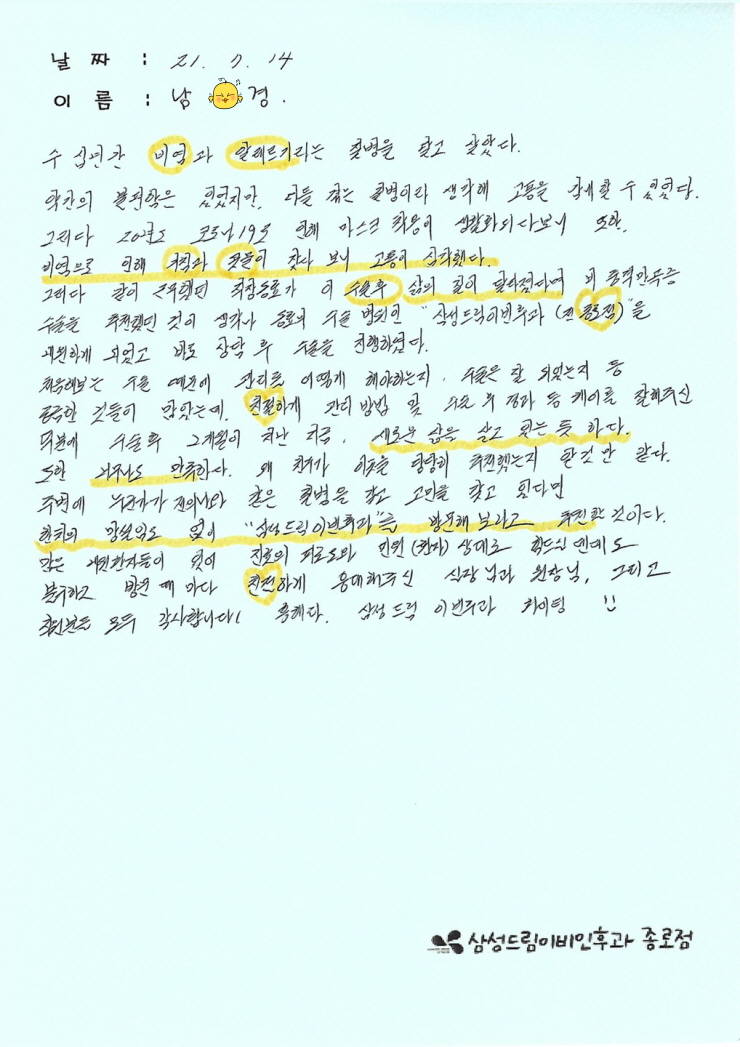 날 짜 : 21. 7. 14
이 름 : 남 경.
수 십년간 비염과 알레르기라는 질병을 앓고 살았다.
약간의 불편함은 있었지만, 다들 겪는 질병이라 생각해 고통을 감내할 수 있었다.
그러다 20년도 코로나19로 인해 마스크 착용이 생활화되다보니 또한,
비염으로 인해 기침과 콧물이 잦다 보니 고통이 심각했다.
그러다 같이 근무했던 직장동료가 이 수술후 삶의 질이 달라졌다며 비 중격만곡증
수술을 추천했던 것이 생각나 동료의 수술 병원인 "삼성드림이비인후과(전 종로점)"을
내원하게 되었고 바로 상담 후 수술을 진행하였다.
처음해보는 수술 때문에 관리를 어떻게 해야하는지, 수술은 잘 되었는지 등
궁금한 것들이 많았는데, 친절하게 관리 방법 및 수술 후 경과 등 케어를 잘해주신
덕분에 수술 후 2개월이 지난 지금, 새로운 삶을 살고 있는 듯 하다.
또한 너무나도 만족한다. 왜 친구가 이곳을 당당히 추천했는지 알것만 같다.
주변에 누군가가 전의 나와 같은 질병을 앓고 고민을 갖고 있다면
한치의 망설임도 없이 "삼성드림이비인후과"를 방문해 보라고 추천할 것이다.
많은 내원환자들이 있어 진료의 피로도와 민원(환자) 상대로 힘드실 텐데도
불구하고 방문 때 마다 친절하게 응대해주신 실장님과 원장님, 그리고
직원분들 모두 감사합니다! 흥해라. 삼성드림 이비인후과 화이팅 !!
삼성드림이비인후과 종로점